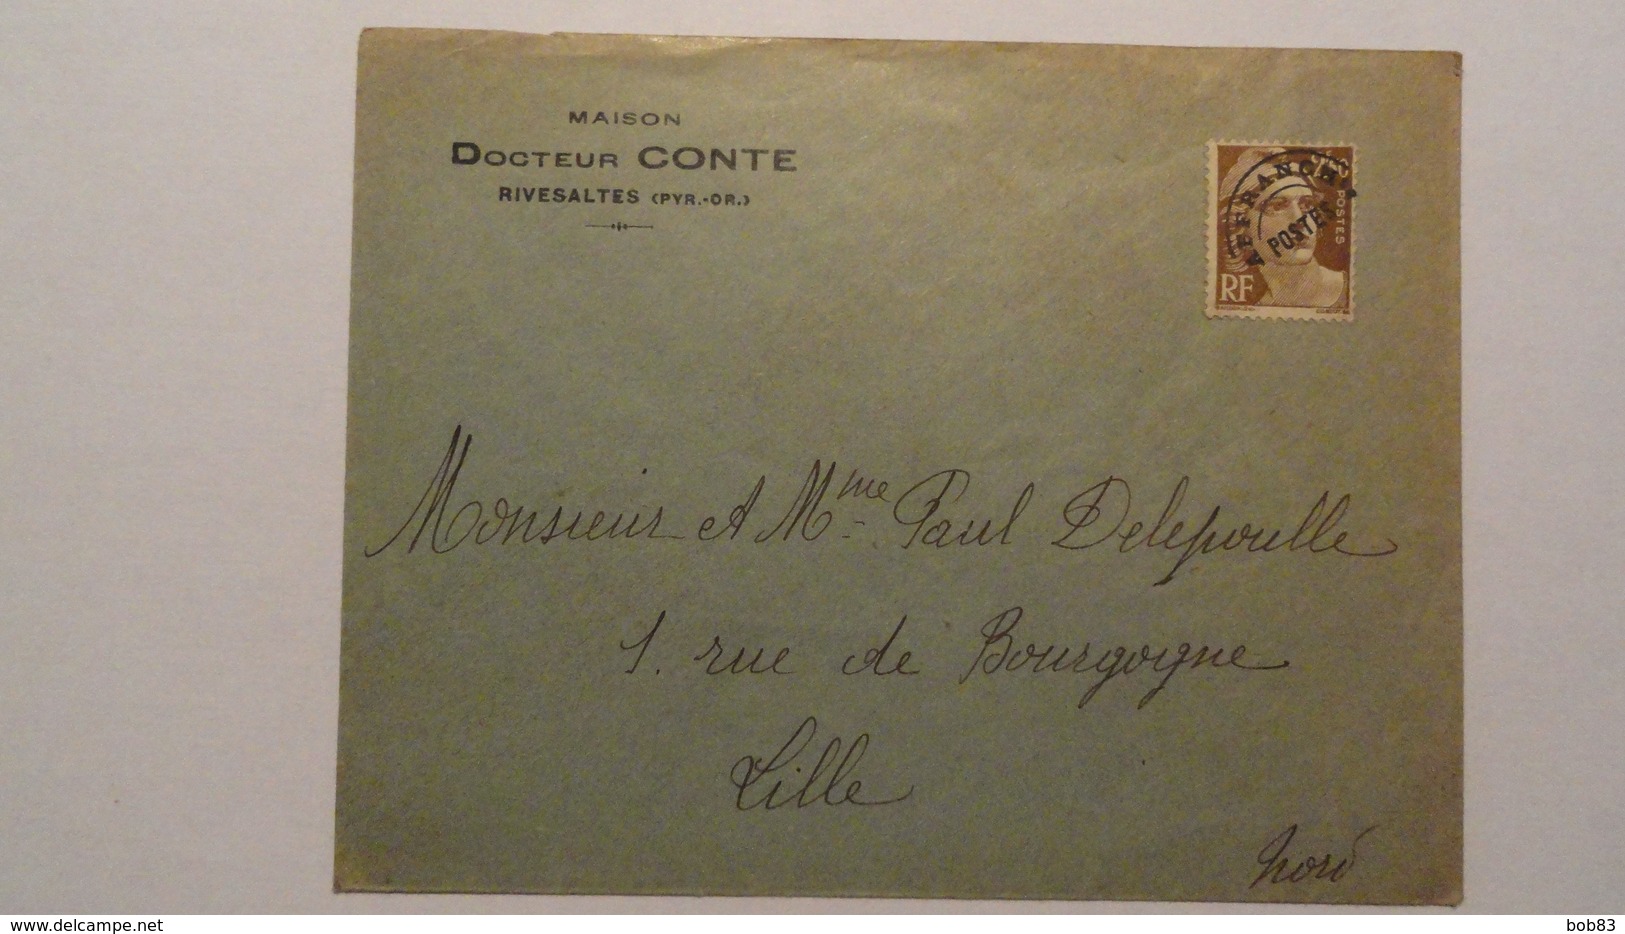 MAISON
DOCTEUR CONTE
RIVESALTES (PYR.-OR.)
AFFRANCHts
POSTES
POSTES
RF
Monsieur et Mme Paul Delepoulle
1. rue de Bourgogne
Lille
Nord
www.delcampe.net
bob83